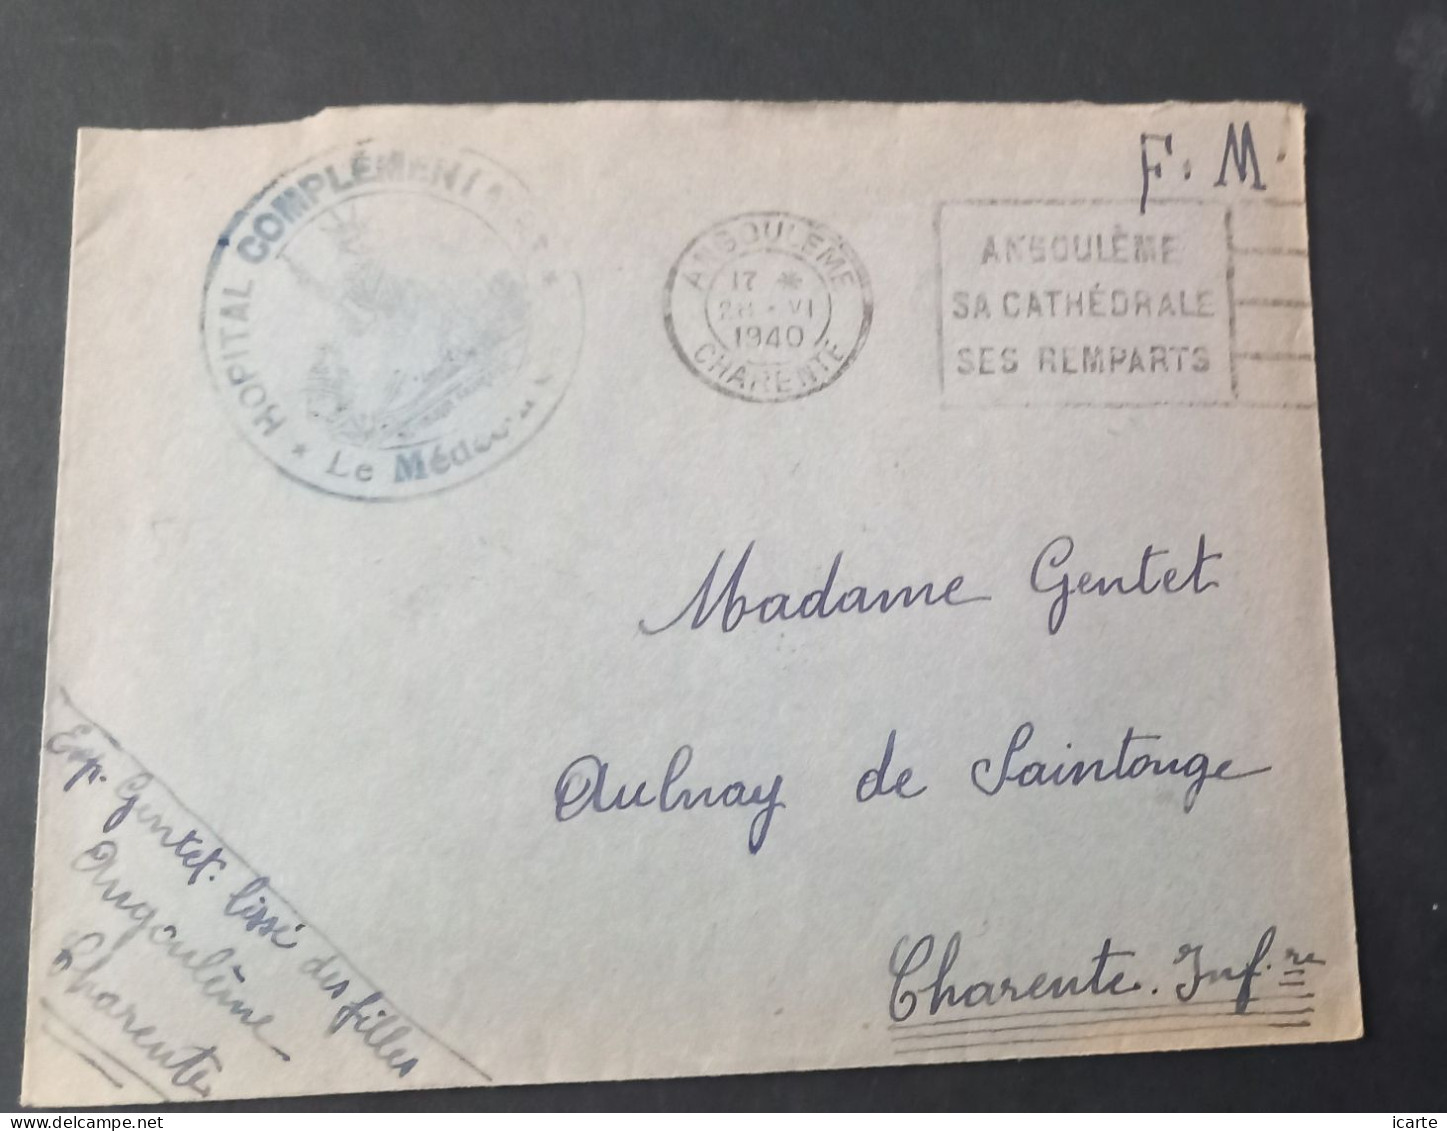 F. M.
HOPITAL COMPLÉMENTAIRE
* Le Médecin
ANGOULEME
17 *
28 - VI
1940
CHARENTE
ANGOULÊME
SA CATHÉDRALE
SES REMPARTS
Madame Gentet
Aulnay de Saintonge
Charente. Inf.re
Exp. Gentet. lissé des filles
Angoulême
Charente
icarte